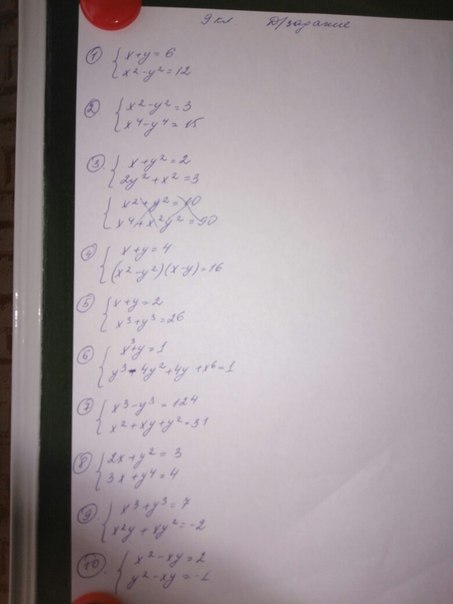 9 кл. Д/задание
① { x+y=6
x²-y²=12
② { x²-y²=3
x⁴-y⁴=15
③ { x+y²=2
2y²+x²=3
{ x²+y²=10
x⁴+x²y²=90
④ { x+y=4
(x²-y²)(x-y)=16
⑤ { x+y=2
x³+y³=26
⑥ { x³+y=1
y³-4y²+4y+x⁶=1
⑦ { x³-y³=124
x²+xy+y²=31
⑧ { 2x+y²=3
3x+y⁴=4
⑨ { x³+y³=7
x²y+xy²=-2
⑩ { x²-xy=2
y²-xy=-1